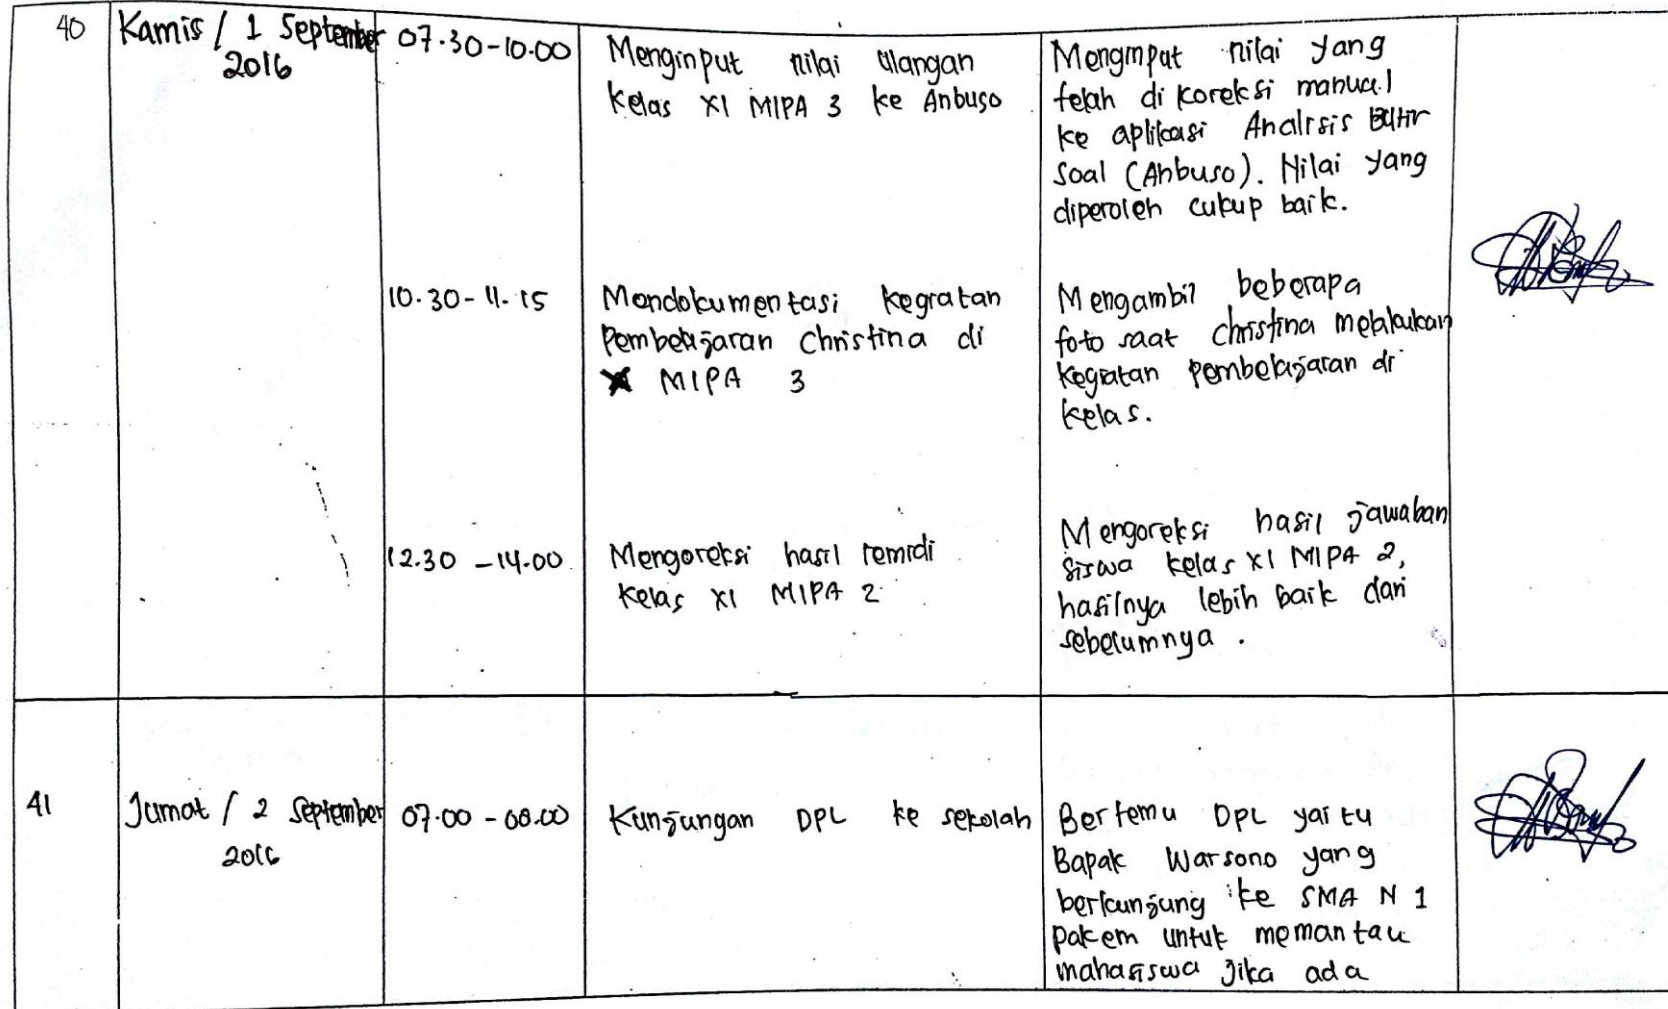 40
Kamis / 1 September
2016
07.30-10.00
Menginput nilai ulangan
kelas XI MIPA 3 ke Anbuso
Menginput nilai yang
telah di koreksi manual
ke aplikasi Analisis Butir
Soal (Anbuso). Nilai yang
diperoleh cukup baik.
10.30-11.15
Mendokumentasi kegiatan
Pembelajaran Christina di
MIPA 3
Mengambil beberapa
foto saat Christina melakukan
kegiatan pembelajaran di
kelas.
12.30 -14.00
Mengoreksi hasil remidi
kelas XI MIPA 2
Mengoreksi hasil jawaban
siswa kelas XI MIPA 2,
hasilnya lebih baik dari
sebelumnya.
41
Jumat / 2 September
2016
07.00 - 08.00
Kunjungan DPL ke sekolah
Bertemu DPL yaitu
Bapak Warsono yang
berkunjung ke SMA N 1
pakem untuk memantau
mahasiswa jika ada